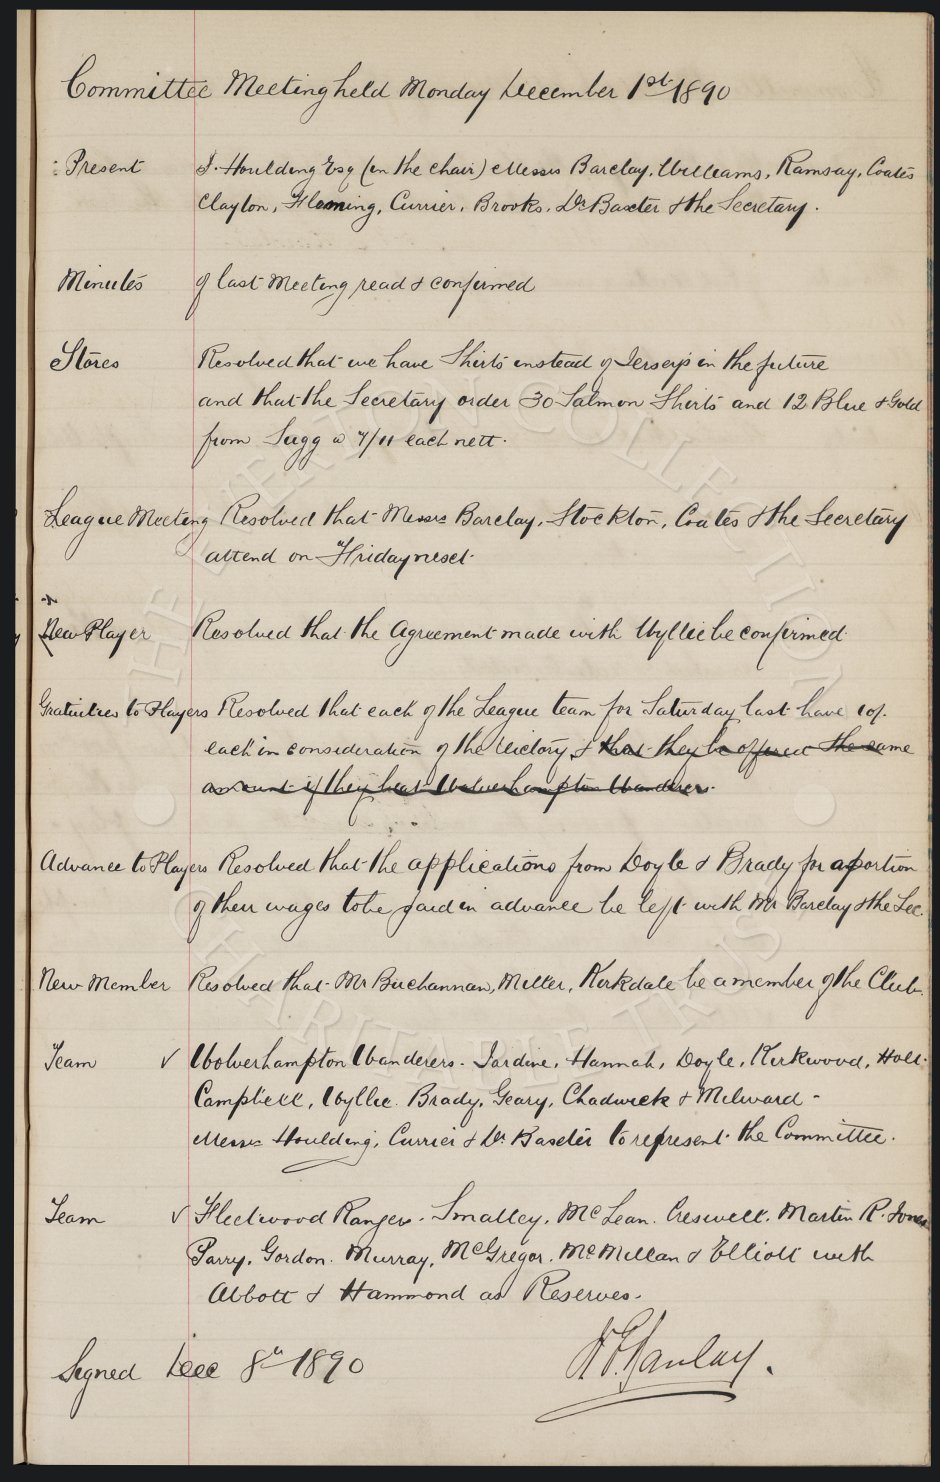 Committee Meeting held Monday December 1st 1890
Present J. Houlding Esq (in the chair) Messrs Barclay, Williams, Ramsay, Coates
Clayton, Fleming, Currier, Brooks, Dr Baxter & the Secretary.
Minutes of last meeting read & confirmed
Stores Resolved that we have Shirts instead of Jerseys in the future
and that the Secretary order 30 Salmon Shirts and 12 Blue & Gold
from Sugg @ 7/11 each nett.
League Meeting Resolved that Messrs Barclay, Stockton, Coates & the Secretary
attend on Friday next.
New Player Resolved that the Agreement made with Wyllie be confirmed
Gratuities to Players Resolved that each of the League team for Saturday last have 10/-
each in consideration of the Victory & that they be offered the same
amount if they beat Wolverhampton Wanderers.
Advance to Players Resolved that the applications from Doyle & Brady for a portion
of their wages to be paid in advance be left with Mr Barclay & the Sec.
New Member Resolved that Mr Buchannan, Miller, Kirkdale be a member of the Club.
Team √ Wolverhampton Wanderers. Jardine, Hannah, Doyle, Kirkwood, Holt.
Campbell, Wyllie. Brady, Geary, Chadwick & Milward -
Messrs Houlding, Currier & Dr Baxter to represent the Committee.
Team √ Fleetwood Rangers. Smalley, McLean. Creswell. Martin R. Jones
Parry, Gordon. Murray, McGregor. McMillan & Elliott with
Abbott & Hammond as Reserves.
Signed Dec 8th 1890
THE EVERTON COLLECTION
CHARITABLE TRUST